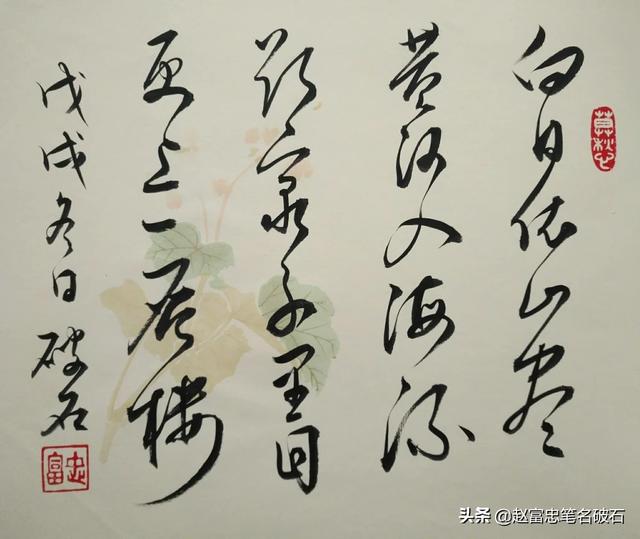 莫愁
白日依山尽
黄河入海流
欲穷千里目
更上一层楼
戊戌冬日 破石
富忠
头条 @赵富忠笔名破石